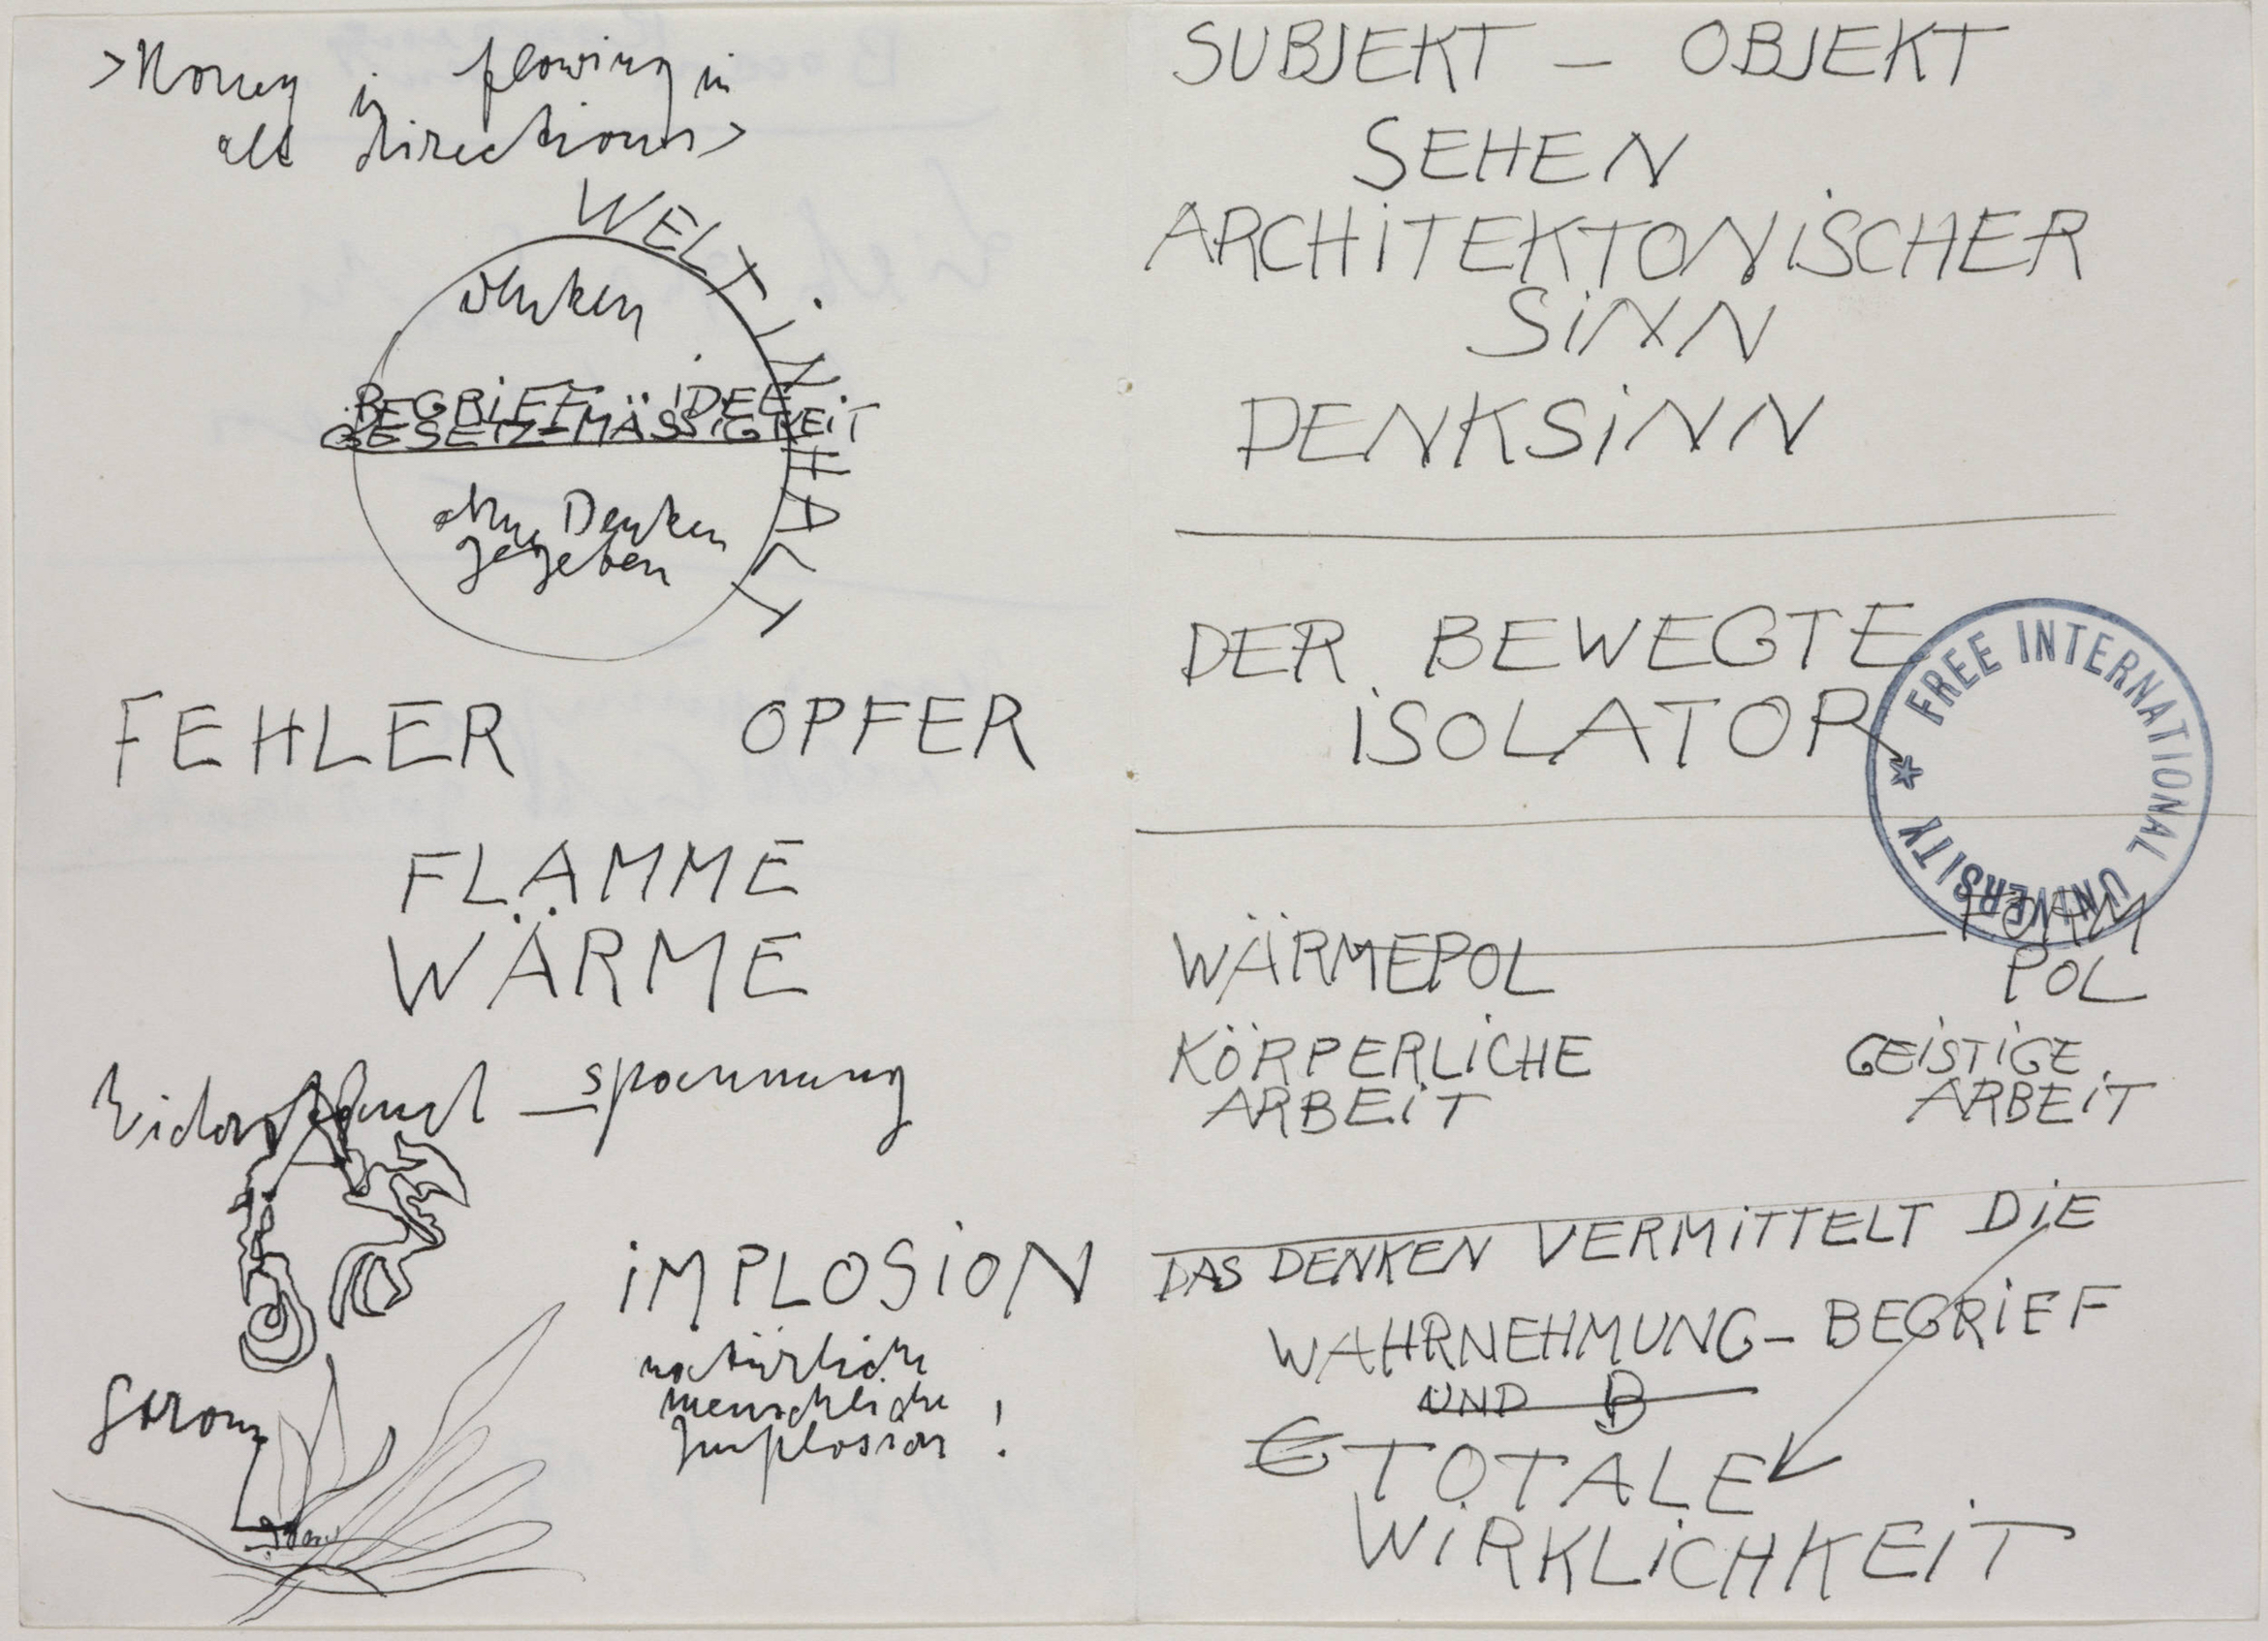 >Honey is flowing in
all directions>
WELTINHALT
Denken
BEGRiFF iDEE
GESETZ-MÄSSiGKEiT
ohne Denken
gegeben
FEHLER OPFER
FLAMME
WÄRME
Widerstand — spannung
iMPLOSiON
natürliche
menschliche
Implosion !
Strom
SUBJEKT – OBJEKT
SEHEN
ARCHiTEKTONiSCHER
SiNN
DENKSiNN
DER BEWEGTE
iSOLATOR
FREE INTERNATIONAL UNIVERSITY *
WÄRMEPOL — FORM
POL
KÖRPERLiCHE GEiSTiGE
ARBEiT ARBEiT
DAS DENKEN VERMiTTELT DiE
WAHRNEHMUNG – BEGRiFF
UND B
TOTALE
WiRKLiCHKEiT